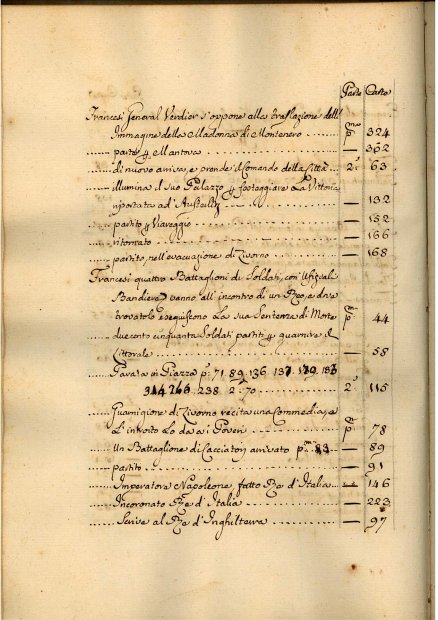 Parte Carta
Francesi General Verdier s'oppone alla traslazione dell'
Immagine della Madonna di Montenero ........ pma 324
........ partito p Mantova ........ — 362
........ di nuovo arriva, e prende il Comando della Città ... 2a 63
........ illumina il suo Palazzo p festeggiare la Vittoria
riportata ad Austerliz ........ — 132
........ partito p Viareggio ........ — 152
........ ritornato ........ — 166
........ partito, nell'evacuazione di Livorno ........ — 168
Francesi quattro Battaglioni di Soldati, con Ufiziali
Bandiere vanno all'incontro di un Reo, e dove
trovatolo eseguiscono la sua Sentenza di Morte pma 44
........ duecento cinquanta Soldati partiti p guarnire il
Littorale ........ — 58
........ Parata in Piazza pa 71. 89. 136. 137. 179. 183
344. 246. 238. 2a 70 ........ 2a 115
........ Guarnigione di Livorno recita una Commedia, e
l'introito lo da ai Poveri ........ pma 78
........ un Battaglione di Cacciatori arrivato pma 83 .. — 89
........ partito ........ — 91
........ Imperatore Napoleone, fatto Re d'Italia ... — 146
........ Incoronato Re d'Italia ........ — 223
........ Scrive al Re d'Inghilterra ........ — 97